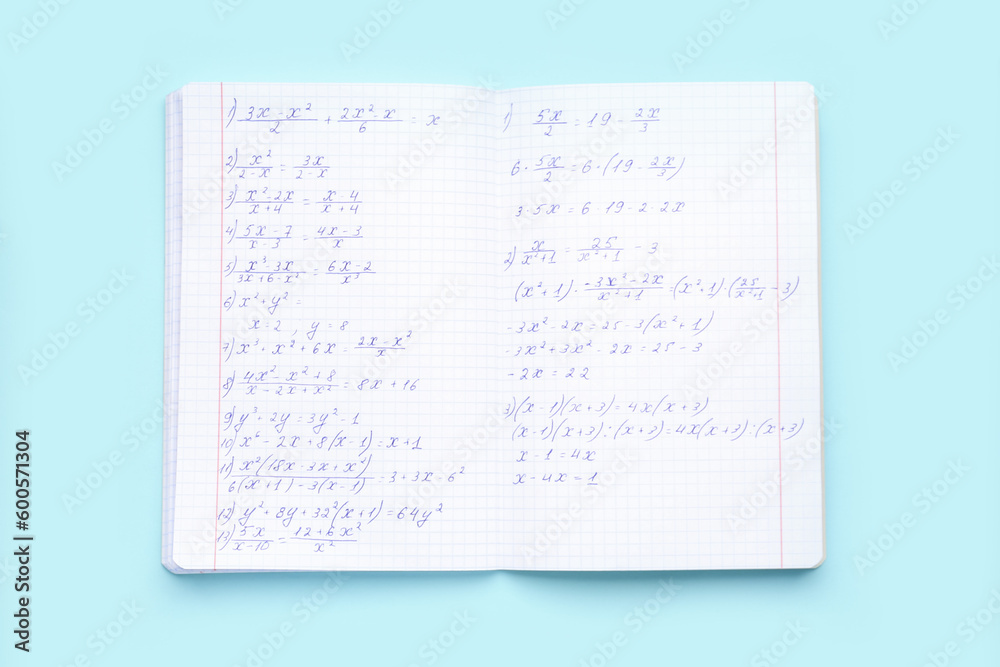 1) (3x - x²)/2 + (2x² - x)/6 = x
2) x²/(2 - x) = 3x/(2 - x)
3) (x² - 2x)/(x + 4) = (x - 4)/(x + 4)
4) (5x - 7)/(x - 3) = (4x - 3)/x
5) (x³ - 3x)/(3x + 6 - x²) = (6x - 2)/x³
6) x² + y² =
x = 2 , y = 8
7) x³ + x² + 6x = (2x - x²)/x
8) (4x² - x² + 8)/(x - 2x + x²) = 8x + 16
9) y³ + 2y = 3y² - 1
10) x⁶ - 2x + 8(x - 1) = x + 1
11) x²(18x - 3x + x²)/(6(x + 1) - 3(x - 1)) = 3 + 3x - 6²
12) y² + 8y + 32²(x + 1) = 64y²
13) 5x/(x - 10) = (12 + 6x²)/x²
1) 5x/2 = 19 - 2x/3
6 · 5x/2 = 6 · (19 - 2x/3)
3 · 5x = 6 · 19 - 2 · 2x
2) x/(x² + 1) = 25/(x² + 1) - 3
(x² + 1) · (-3x² - 2x)/(x² + 1) = (x² + 1) · (25/(x² + 1) - 3)
-3x² - 2x = 25 - 3(x² + 1)
-3x² + 3x² - 2x = 25 - 3
-2x = 22
3) (x - 1)(x + 3) = 4x(x + 3)
(x - 1)(x + 3) : (x + 3) = 4x(x + 3) : (x + 3)
x - 1 = 4x
x - 4x = 1
Adobe Stock | #600571304